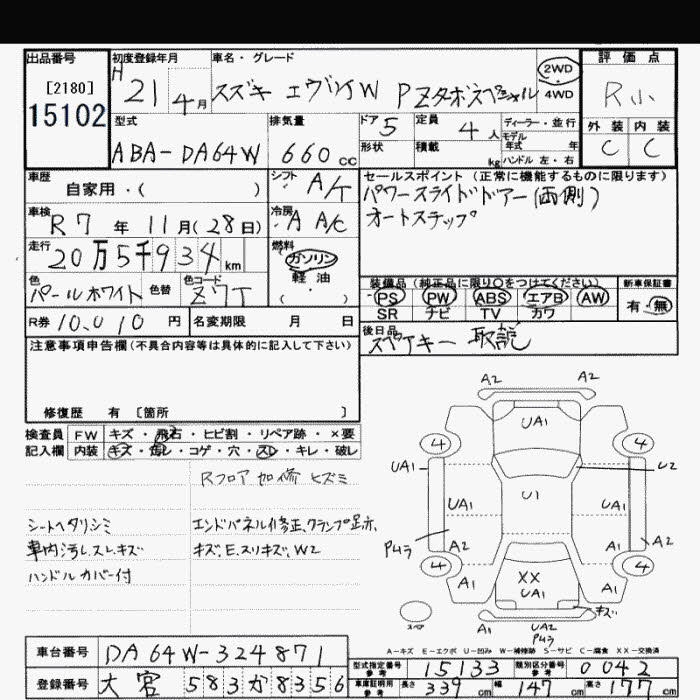 出品番号
[2180]
15102
初度登録年月
H 21 4月
車名・グレード
スズキ エヴリイW PZターボスペシャル
2WD
4WD
評価点
R小
外装 内装
C C
型式
ABA-DA64W
排気量
660cc
ドア 5
形状
定員 4人
積載 kg
ディーラー・並行
モデル年式 年
ハンドル 左・右
車歴
自家用・( )
シフト A/T
車検
R7年11月(28日)
冷房 A A/C
走行
20万5千934km
燃料
ガソリン
軽油
( ・ )
色
パールホワイト
色替
色コード
Z7T
R券 10,010円
名変期限 月 日
セールスポイント(正常に機能するものに限ります)
パワースライドドアー(両側)
オートステップ
装備品(純正品に限り○をつけてください)
PS PW ABS エアB AW
SR ナビ TV カワ
新車保証書
有・無
後日品
スペアキー 取説
注意事項申告欄(不具合内容等は具体的に記入して下さい)
修復歴 有 [箇所 ]
検査員 FW キズ・飛石・ヒビ割・リペア跡・×要
記入欄 内装 キズ・汚レ・コゲ・穴・スレ・キレ・破レ
Rフロア加修 ヒズミ
シートヘタリシミ
車内汚レ.スレ.キズ
ハンドルカバー付
エンドパネル修正、クランプ足示、
キズ、E.スリキズ、W2
A2 A2
UA1
4 4
UA1 U2
U1
UA1 UA1
A2 A2
Pムラ
4 4
A1 A1
XX
UA1
キズ
スペア
A1 UA2
Pムラ
A-キズ E-エクボ U-凹み W-補修跡 S-サビ C-腐食 XX-交換済
車台番号 DA64W-324871
登録番号 大宮583か8356
型式指定番号 参考 15133
類別区分番号 参考 0042
車庫証明用 参考 長さ 339cm 幅 147cm 高さ 177cm